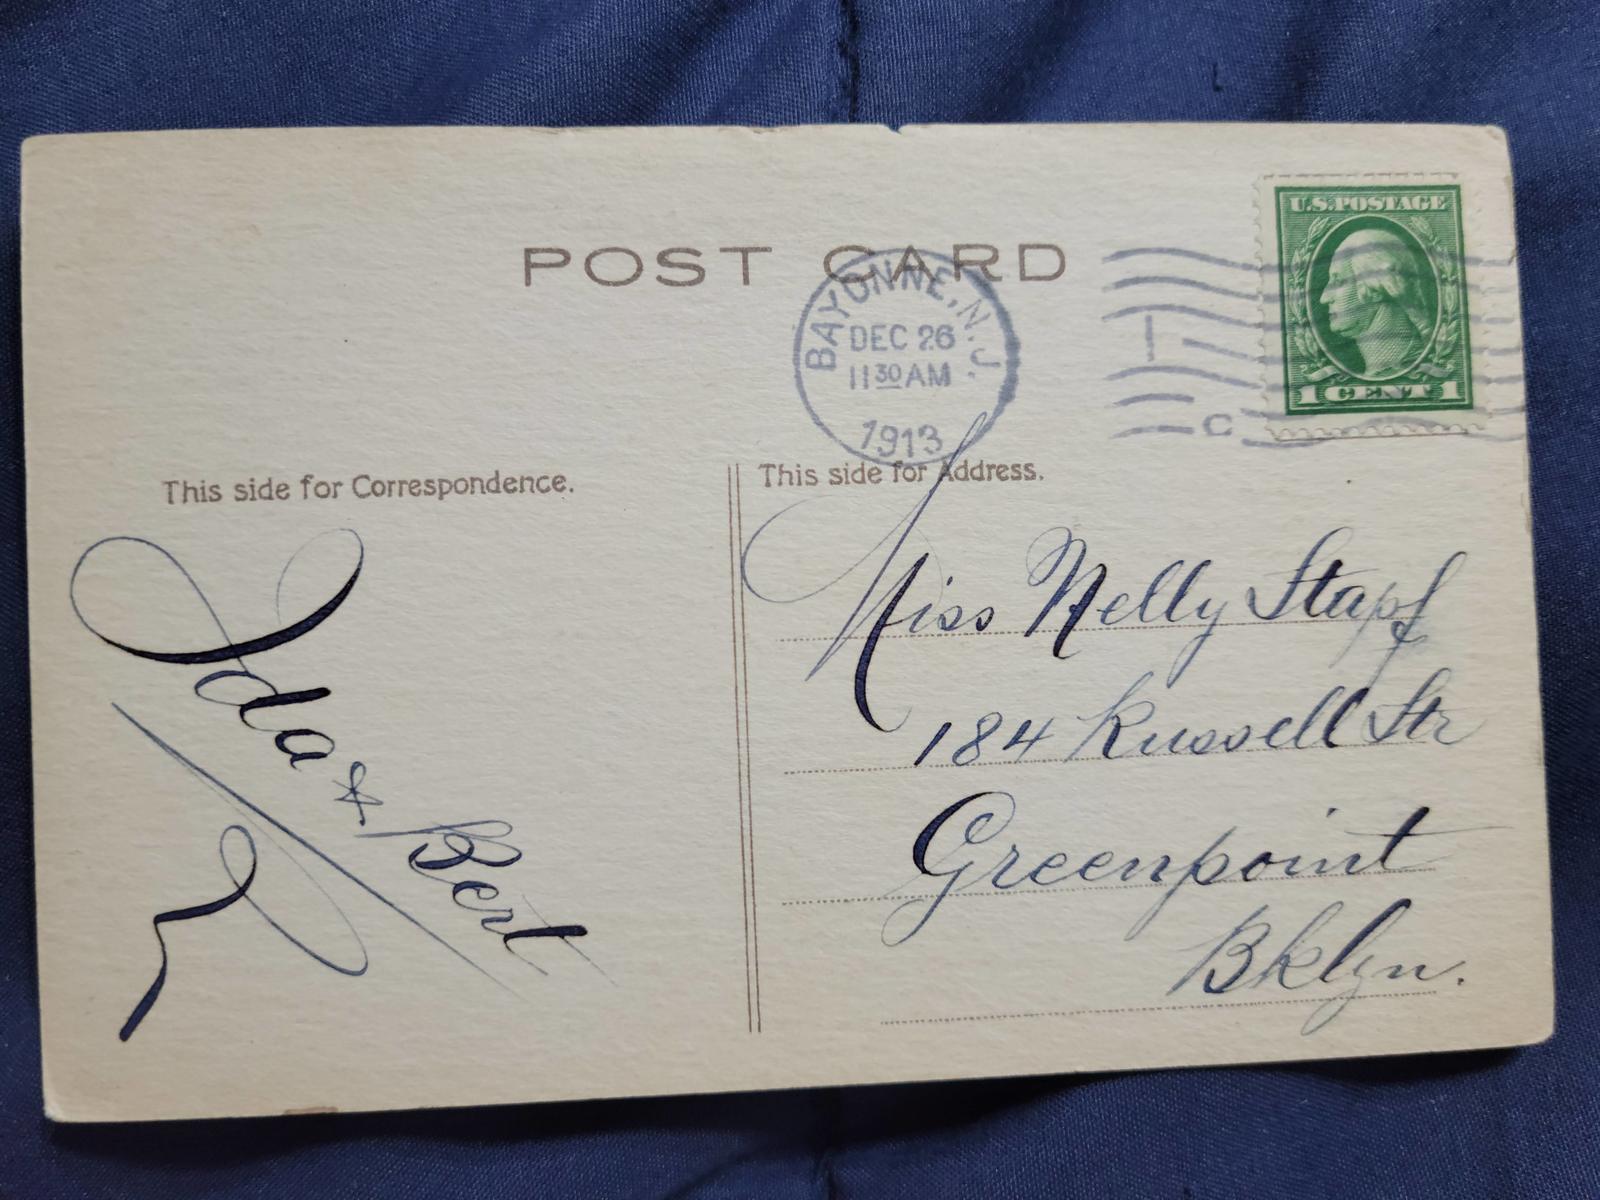 POST CARD
U.S. POSTAGE
1 CENT 1
BAYONNE, N.J.
DEC 26
11 30 AM
1913
C
This side for Correspondence.
Ida & Bert
This side for Address.
Miss Nelly Stapf
184 Russell Str
Greenpoint
Bklyn.